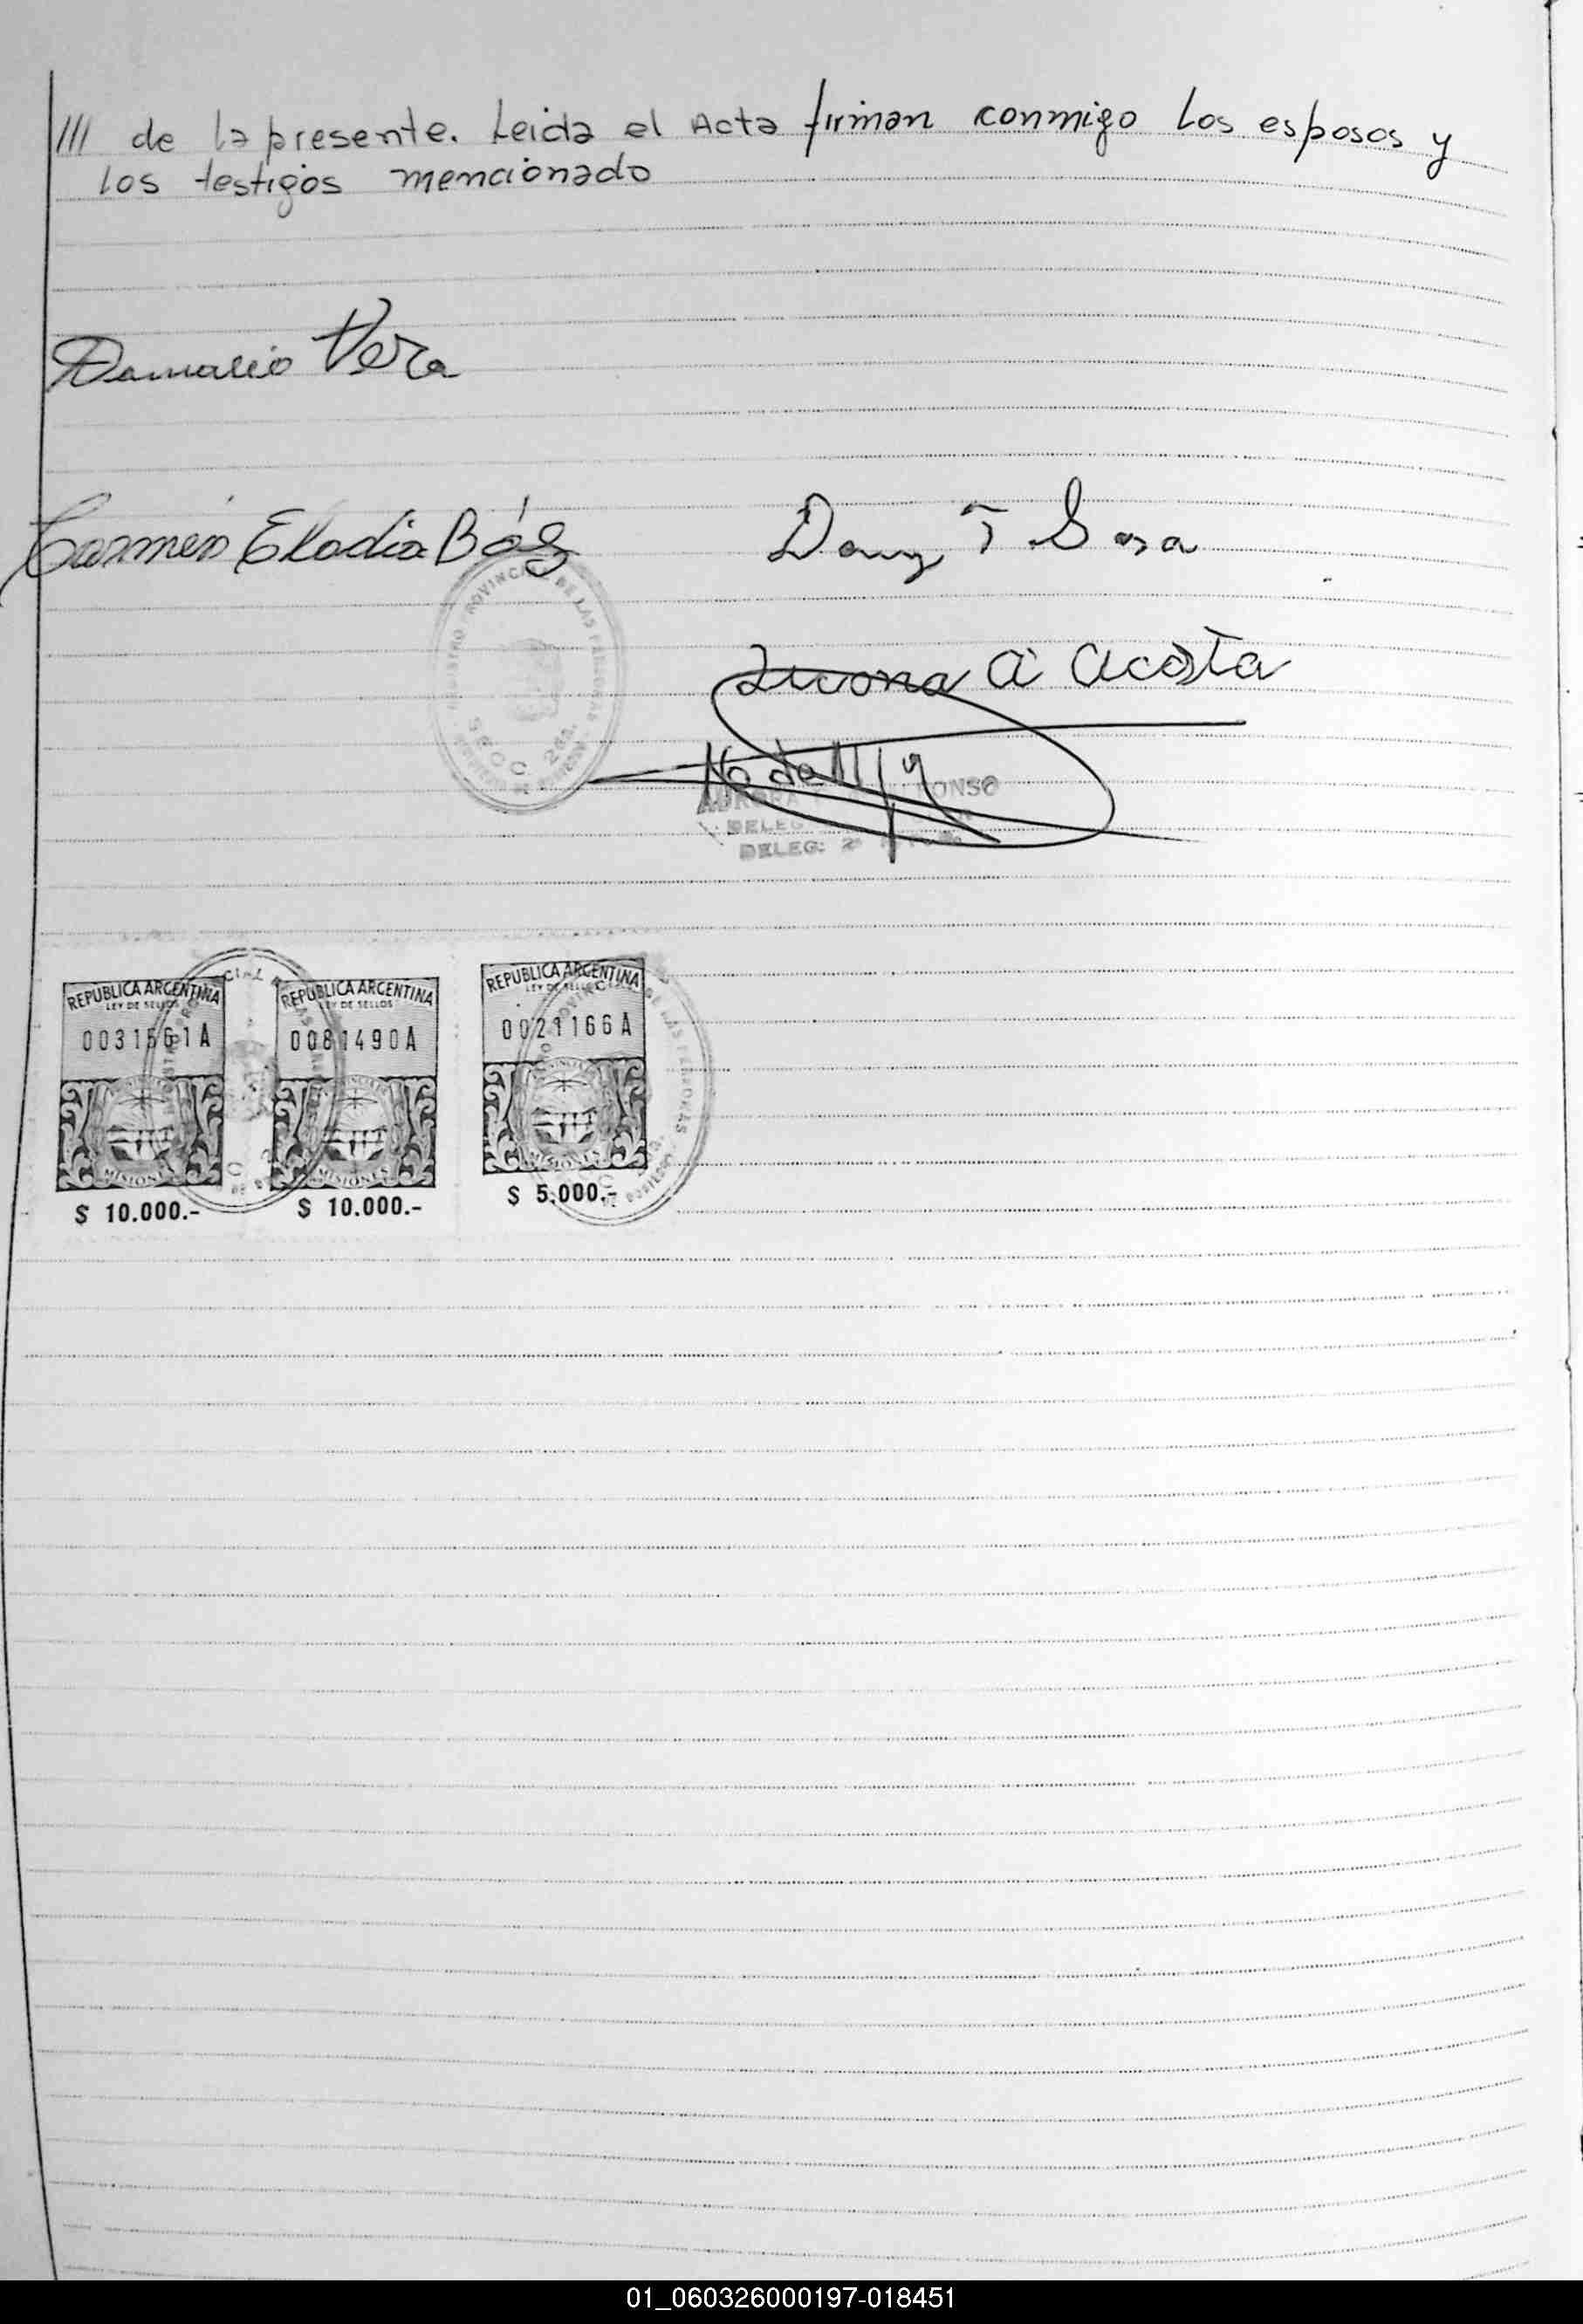 /// de la presente. Leida el Acta firman conmigo los esposos y
los testigos mencionado
Damacio Vera
Carmen Elodia Báez
Dany T Sosa
Acosta
ONSO
DELEG
DELEG: 2ª
REGISTRO PROVINCIAL DE LAS PERSONAS
SECC 2da.
REPUBLICA ARGENTINA
LEY DE SELLOS
0031561A
MISIONES
$ 10.000.-
REPUBLICA ARGENTINA
LEY DE SELLOS
0081490A
MISIONES
$ 10.000.-
REPUBLICA ARGENTINA
LEY DE SELLOS
0021166A
MISIONES
$ 5.000.-
01_060326000197-018451